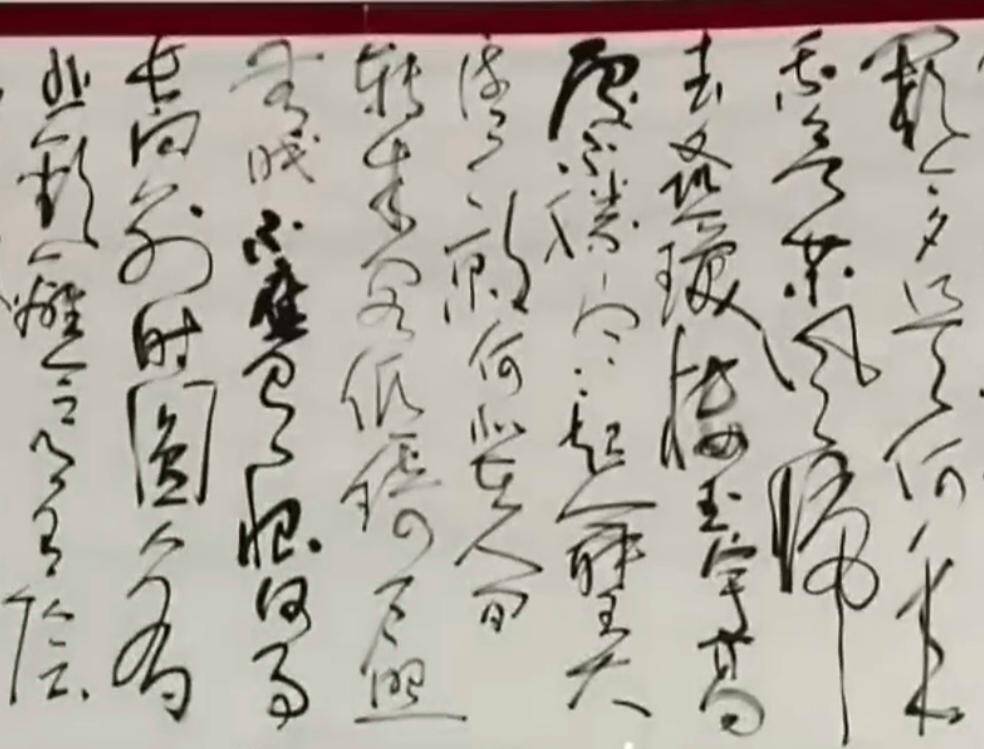 闕今夕是何年
我欲乘风歸
去又恐瓊楼玉宇高
處不勝寒起舞弄
清影何似在人间
轉朱阁低绮户照
无眠不應有恨何事
长向别时圆人有
悲歡離合月有陰